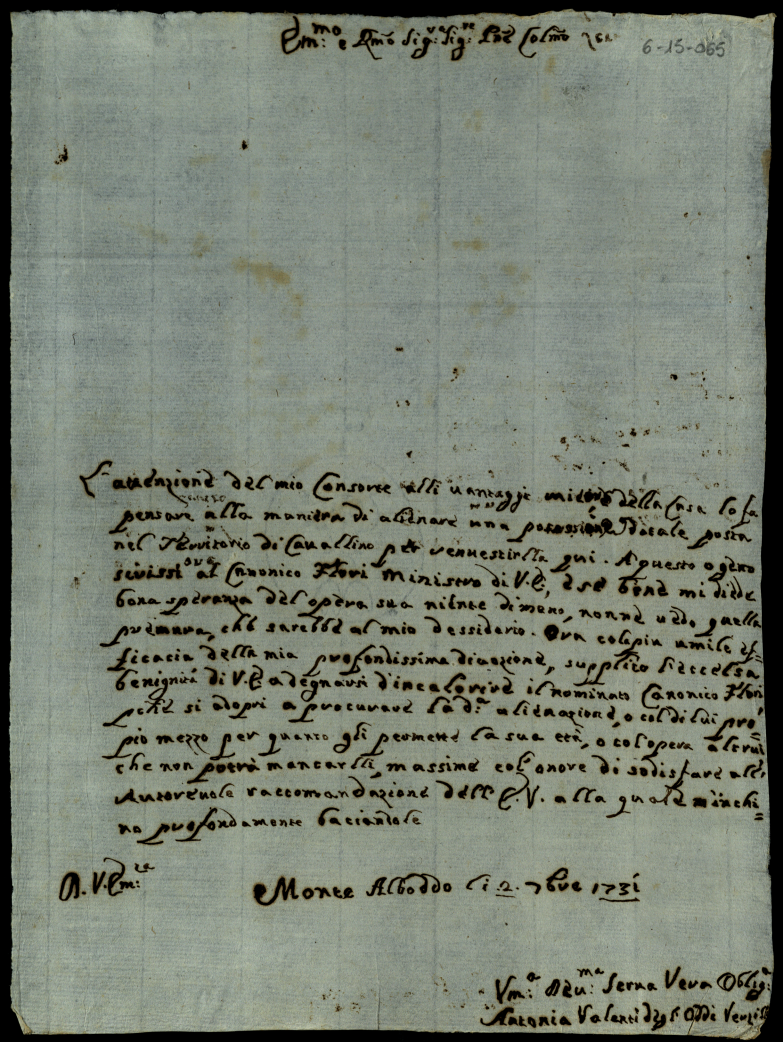 Em:mo e Rmo Sig:re Sig:re Pne Colmo
6-15-065
L'attenzione del mio Consorte alli vantaggi della Casa lo fa
pensare alla maniera di alienare una possessione Idiale posta
nel Territorio di Cavallino per rennestirlla qui. A questo ogeto
scrissi al Canonico Flori Ministro di V.E, e se bene mi diede
bona speranza del opera sua niente dimeno, nonne vedo quella
premura, che sarebbe al mio dessiderio. Ora colapiu umile ef=
ficacia della mia profondissima divozione, supplico l'eccelsa
benignità di V.E adegnarsi d'incalorire il nominato Canonico Flori
pche si adopri a procurare la d:a alienazione, o col di lui pro=
pio mezzo per quanto gli permette la sua età, o col'opera altrui
che non potrà mancarlli, massime col'onore di sodisfare all'
Autorevole raccomandazione dell'E.V. alla quale m'inchi=
no profondamente baciandole
D. V. Em:ze
Monte Alboddo li 2. 7bre 1731
Vm:a Deu:ma Serua Vera Oblig:a
Antonia Valenti degl'Oddi